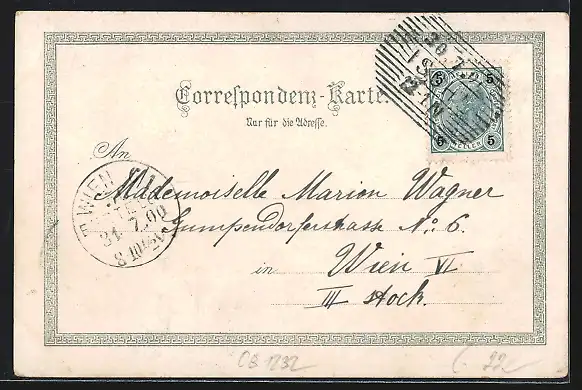 Correspondenz-Karte.
Nur für die Adresse.
5 5
5 5
HELLER
An
Mademoiselle Marion Wagner
Gumpendorferstrasse No. 6.
in Wien VI
III Stock.
WIEN
7.00
CB 1232
22